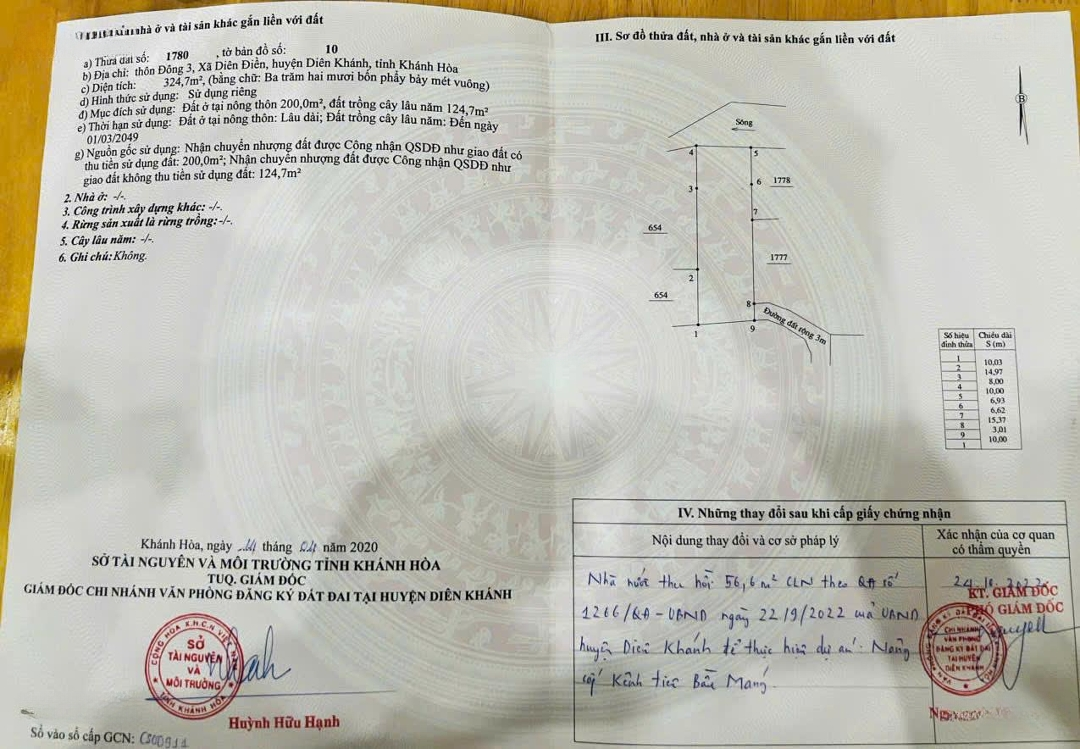 nhà ở và tài sản khác gắn liền với đất
a) Thửa đất số: 1780 , tờ bản đồ số: 10
b) Địa chỉ: thôn Đông 3, Xã Diên Điền, huyện Diên Khánh, tỉnh Khánh Hòa
c) Diện tích: 324,7m², (bằng chữ: Ba trăm hai mươi bốn phẩy bảy mét vuông)
d) Hình thức sử dụng: Sử dụng riêng
đ) Mục đích sử dụng: Đất ở tại nông thôn 200,0m², đất trồng cây lâu năm 124,7m²
e) Thời hạn sử dụng: Đất ở tại nông thôn: Lâu dài; Đất trồng cây lâu năm: Đến ngày
01/03/2049
g) Nguồn gốc sử dụng: Nhận chuyển nhượng đất được Công nhận QSDĐ như giao đất có
thu tiền sử dụng đất: 200,0m²; Nhận chuyển nhượng đất được Công nhận QSDĐ như
giao đất không thu tiền sử dụng đất: 124,7m²
2. Nhà ở: -/-.
3. Công trình xây dựng khác: -/-.
4. Rừng sản xuất là rừng trồng:-/-.
5. Cây lâu năm: -/-.
6. Ghi chú:Không.
Khánh Hòa, ngày tháng năm 2020
SỞ TÀI NGUYÊN VÀ MÔI TRƯỜNG TỈNH KHÁNH HÒA
TUQ. GIÁM ĐỐC
GIÁM ĐỐC CHI NHÁNH VĂN PHÒNG ĐĂNG KÝ ĐẤT ĐAI TẠI HUYỆN DIÊN KHÁNH
CỘNG HÒA X.H.C.N VIỆT NAM
SỞ
TÀI NGUYÊN
VÀ
MÔI TRƯỜNG
TỈNH KHÁNH HÒA
Huỳnh Hữu Hạnh
Số vào sổ cấp GCN:
III. Sơ đồ thửa đất, nhà ở và tài sản khác gắn liền với đất
B
Sông
4 5
3 6 1778
7
654 1777
2
654 8
Đường đất rộng 3m
1 9
Số hiệu đỉnh thửa Chiều dài S (m)
1
10,03
2
14,97
3
8,00
4
10,00
5
6,93
6
6,62
7
15,37
8
3,01
9
10,00
1
IV. Những thay đổi sau khi cấp giấy chứng nhận
Nội dung thay đổi và cơ sở pháp lý
Xác nhận của cơ quan
có thẩm quyền
Nhà nước thu hồi 56,6 m² CLN theo QĐ số
1266/QĐ-UBND ngày 22/9/2022 của UBND
huyện Diên Khánh để thực hiện dự án: Nâng
cấp Kênh tiêu Bầu Mang.
KT. GIÁM ĐỐC
PHÓ GIÁM ĐỐC
CHI NHÁNH
VĂN PHÒNG
ĐĂNG KÝ ĐẤT ĐAI
TẠI HUYỆN
DIÊN KHÁNH